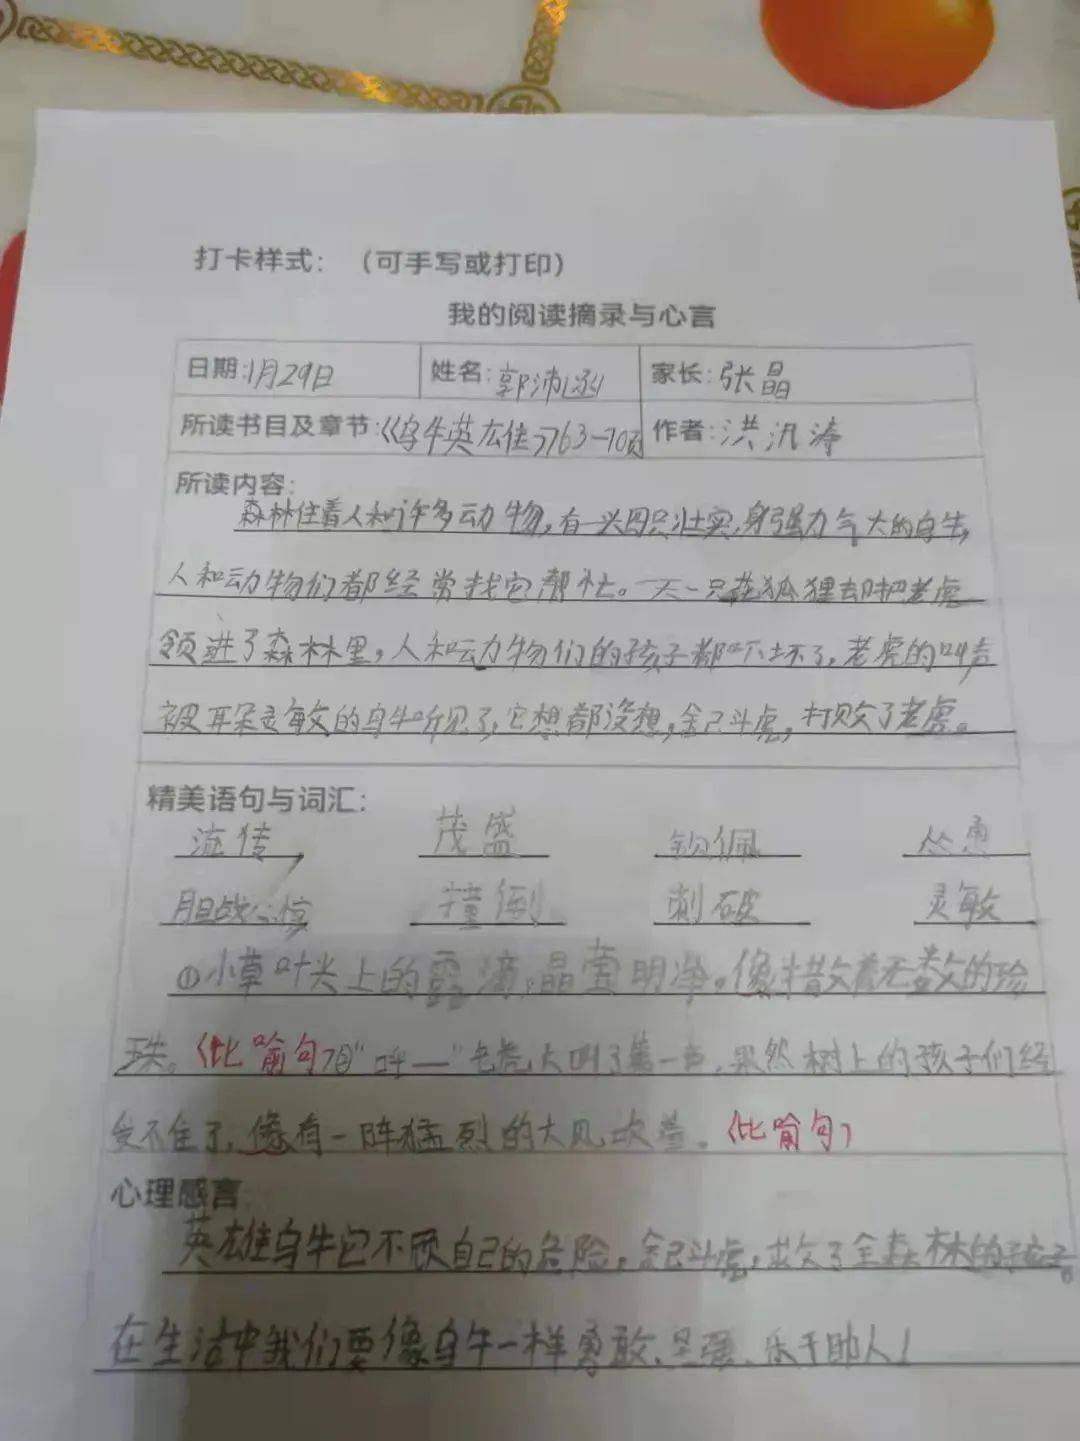 打卡样式：（可手写或打印）
我的阅读摘录与心言
日期:1月29日 姓名:郭沛 家长:张晶
所读书目及章节:《乌牛英雄》63-70页 作者:洪汛涛
所读内容:
森林住着人和许多动物,有一头因只壮实,身强力气大的乌牛,
人和动物们都经常找它帮忙。一天一只花狐狸却把老虎
领进了森林里,人和动物们的孩子都吓坏了,老虎的叫声
被耳朵灵敏的乌牛听见了,它想都没想,舍己斗虎,打败了老虎。
精美语句与词汇:
流传, 茂盛 钦佩 怂恿
胆战心惊 撞倒 刺破 灵敏
①小草叶尖上的露滴,晶莹明净。像撒散着无数的珍
珠。(比喻句)②"呼——"老虎大叫了第一声,果然树上的孩子们经
受不住了,像有一阵猛烈的大风吹着。(比喻句)
心理感言:
英雄乌牛它不顾自己的危险,舍己斗虎,救了全森林的孩子。
在生活中我们要像乌牛一样勇敢、坚强、乐于助人!